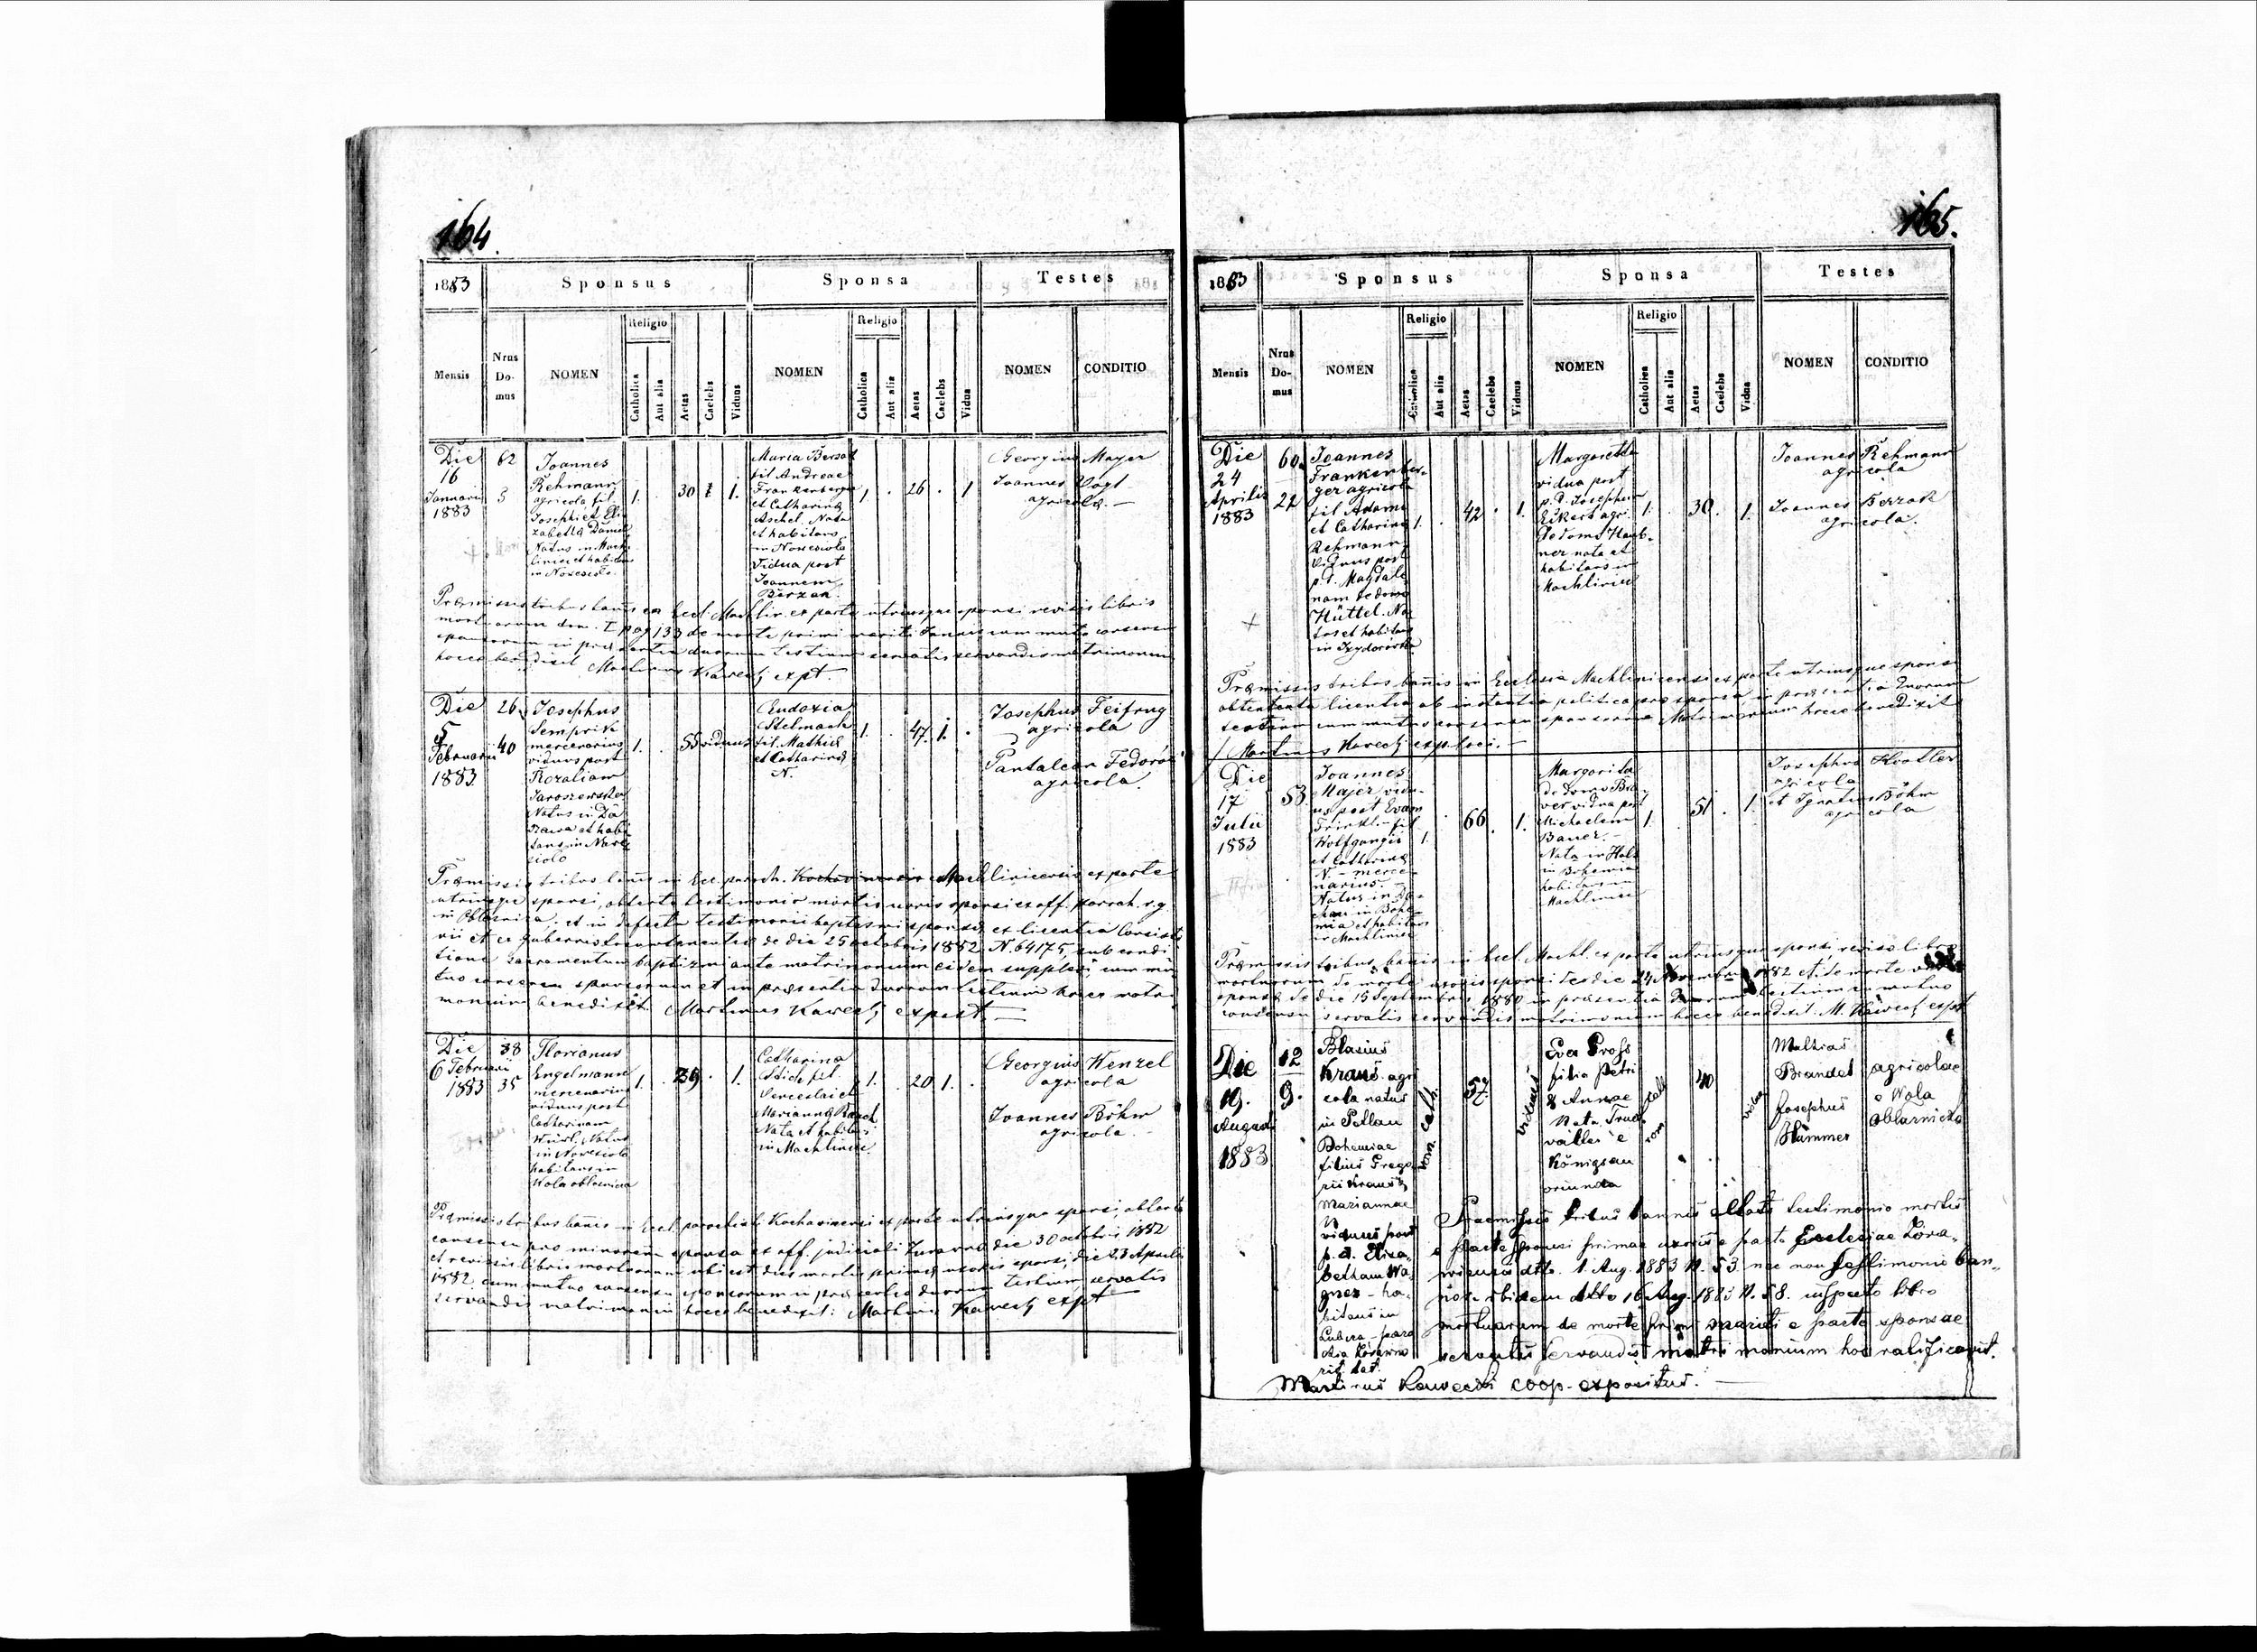 164.
1883
Sponsus
Sponsa
Testes
Mensis
Nrus Do- mus
NOMEN
Religio
Catholica
Aut alia
Aetas
Caelebs
Viduus
NOMEN
Religio
Catholica
Aut alia
Aetas
Caelebs
Vidua
NOMEN
CONDITIO
Die
16
Januarii
1883
62
5
Joannes
Rehmann
agricola fil.
Josephi et Eli
zabetha Daniel
Natus in Mach
liniec et habitans
in Nowesioło.
1.
30
1.
Maria Berzak
fil. Andreae
Frankenberger
et Catharina
Aschel. Nata
et habitans
in Nowesioło
Vidua post
Joannem
Berzak.
1.
26
1
Georgius Mayer
Joannes Vogt
agricola.
Praemissis tribus bannis in Eccl. Machlin. ex parte utriusque sponsi revisis libris
mortuorum tom. I pag 133 de morte primi mariti Januar cum mutuo consensu
sponsorum in praesentia duorum testium servatis servandis matrimonium
hocce benedixit Martinus Kawecki expt.
Die
5
Februarii
1883.
26
40
Josephus
Semprik
mercenarius
viduus post
Rozaliam
Jaroszewska
Natus in Da
szawa et habi
tans in Nowe
sioło
1.
55
viduus
Eudoxia
Stelmach
fil. Mathiae
et Catharina
N.
1.
47.
1.
Josephus Feifrug
agricola
Pantalean Fedorów
agricola.
Praemissis tribus bannis in Ecc. paroch. Machliniecensi ex parte
utriusque sponsi, oblato testimonio mortis uxoris sponsi ex off. parroh. r. g.
in Oblaznica, et in defectu testimonii baptismi sponsae et licentia Consisto
rii et ex Gubernio Locumtenentiae de die 25 octobris 1882 N. 64175, sub condi
tione sacramentum baptismi ante matrimonium eidem supplevi cum mu
tuo consensu sponsorum et in praesentia duorum testium hocce matri
monium benedixit. Martinus Kawecki expost.
Die
6 Februarii
1883
38
35
Florianus
Engelmann
mercenarius
viduus post
Catharinam
Würl. Natus
in Nowesioło
habitans in
Wola oblaznica
1.
39
1.
Catharina
Stich fil.
Venceslai et
Marianna Rauch
Nata et habitans
in Machliniec.
1.
20
1.
Georgius Wenzel
agricola
Joannes Böhm
agricola.
Praemissis tribus bannis in Eccl. parochiali Kochawinensi ex parte utriusque sponsi, oblato
consensu pro minorenni sponsa ex off. judiciali Zurawno die 30 octobris 1882
et revisis libris mortuorum ubi est dies mortis primae uxoris sponsi, die 23 Aprilis
1882 cum mutuo consensu sponsorum in praesentia duorum testium servatis
servandis matrimonium hocce benedixit: Martinus Kawecki expt
165.
1883
Sponsus
Sponsa
Testes
Mensis
Nrus Do- mus
NOMEN
Religio
Catholica
Aut alia
Aetas
Caelebs
Viduus
NOMEN
Religio
Catholica
Aut alia
Aetas
Caelebs
Vidua
NOMEN
CONDITIO
Die
24
Aprilis
1883
60.
22
Joannes
Frankenber-
ger agricola
fil. Adami
et Catharina
Rehmann
Viduus post
p.d. Magdale
nam de domo
Hüttel. Na
tus et habitans
in Izydorówka
1.
42
1.
Margaretha
vidua post
p.d. Josephum
Eikert agr.
de domo Haub-
ner nata et
habitans in
Machliniec
1.
30.
1.
Joannes Rehmann
agricola
Joannes Berzak
agricola.
Praemissis tribus bannis in Ecclesia Machliniecensi ex parte utriusque sponsi
obtenta licentia ab instantia politica pro sponsa, in praesentia duorum
testium cum mutuo consensu sponsorum Matrimonium hocce benedixit
Martinus Kawecki exp. loci.
Die
17
Julii
1883
53.
Joannes
Majer vidu-
us post Evam
Frinkl. fil.
Wolfgangii
et Catharina
N. - merce-
narius.
Natus in
in Bohe-
mia et habitans
in Machliniec
1.
66.
1.
Margarita
de domo
vidua post
Michaelem
Bauer.
Nata in
in Bohemia
habitans in
Machliniec
1.
51.
1.
Josephus
agricola
et Ignatius Böhm
agricola
Praemissis tribus bannis in Eccl. Machl. ex parte utriusque sponsi, reviso libro
mortuorum de morte uxoris sponsi de die 24 Novembris 1882 et de morte
sponsae de die 15 Septembris 1880 in praesentia duorum testium cum mutuo
consensu servatis servandis matrimonium hocce benedixit. M. Kawecki expt
Die
19.
Augusti
1883
12
9.
Blasius
Kraus agri
cola natus
in Petlau
Bohemiae
filius Grego
rii Kraus &
Mariannae
N
viduus post
p. d. Elisa
betham Wa
gner - ha
bitans in
Lubsza - para
rom. cath.
57.
viduus
Eva Gross
filia Petri
& Annae
Nata
e
Königsau
oriunda
rom cath
40
vidua
Mathias
Brandel
Josephus
Hammer
agricolae
e Wola
oblaznicka
Praemissis tribus bannis allato testimonio mortis
e parte sponsi primae uxoris e parte Ecclesiae Żura-
wiensis dtto. 1 Aug. 1883 N. 53. nec non testimonio ban-
nor. ibidem dtto 16 Aug. 1883 N. 58. inspecto libro
mortuorum de morte primi mariti e parte sponsae
servatis servandis matrimonium hoc ratificavit.
Martinus Kawecki coop. expositus.